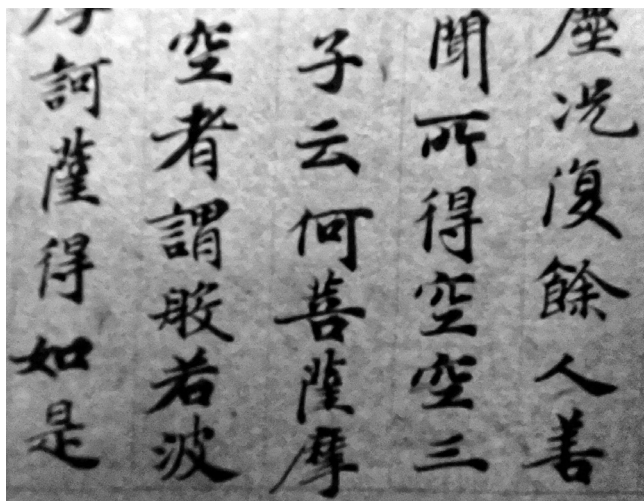 塵况復餘人善
聞所得空空三
子云何菩薩摩
空者謂般若波
摩訶薩得如是